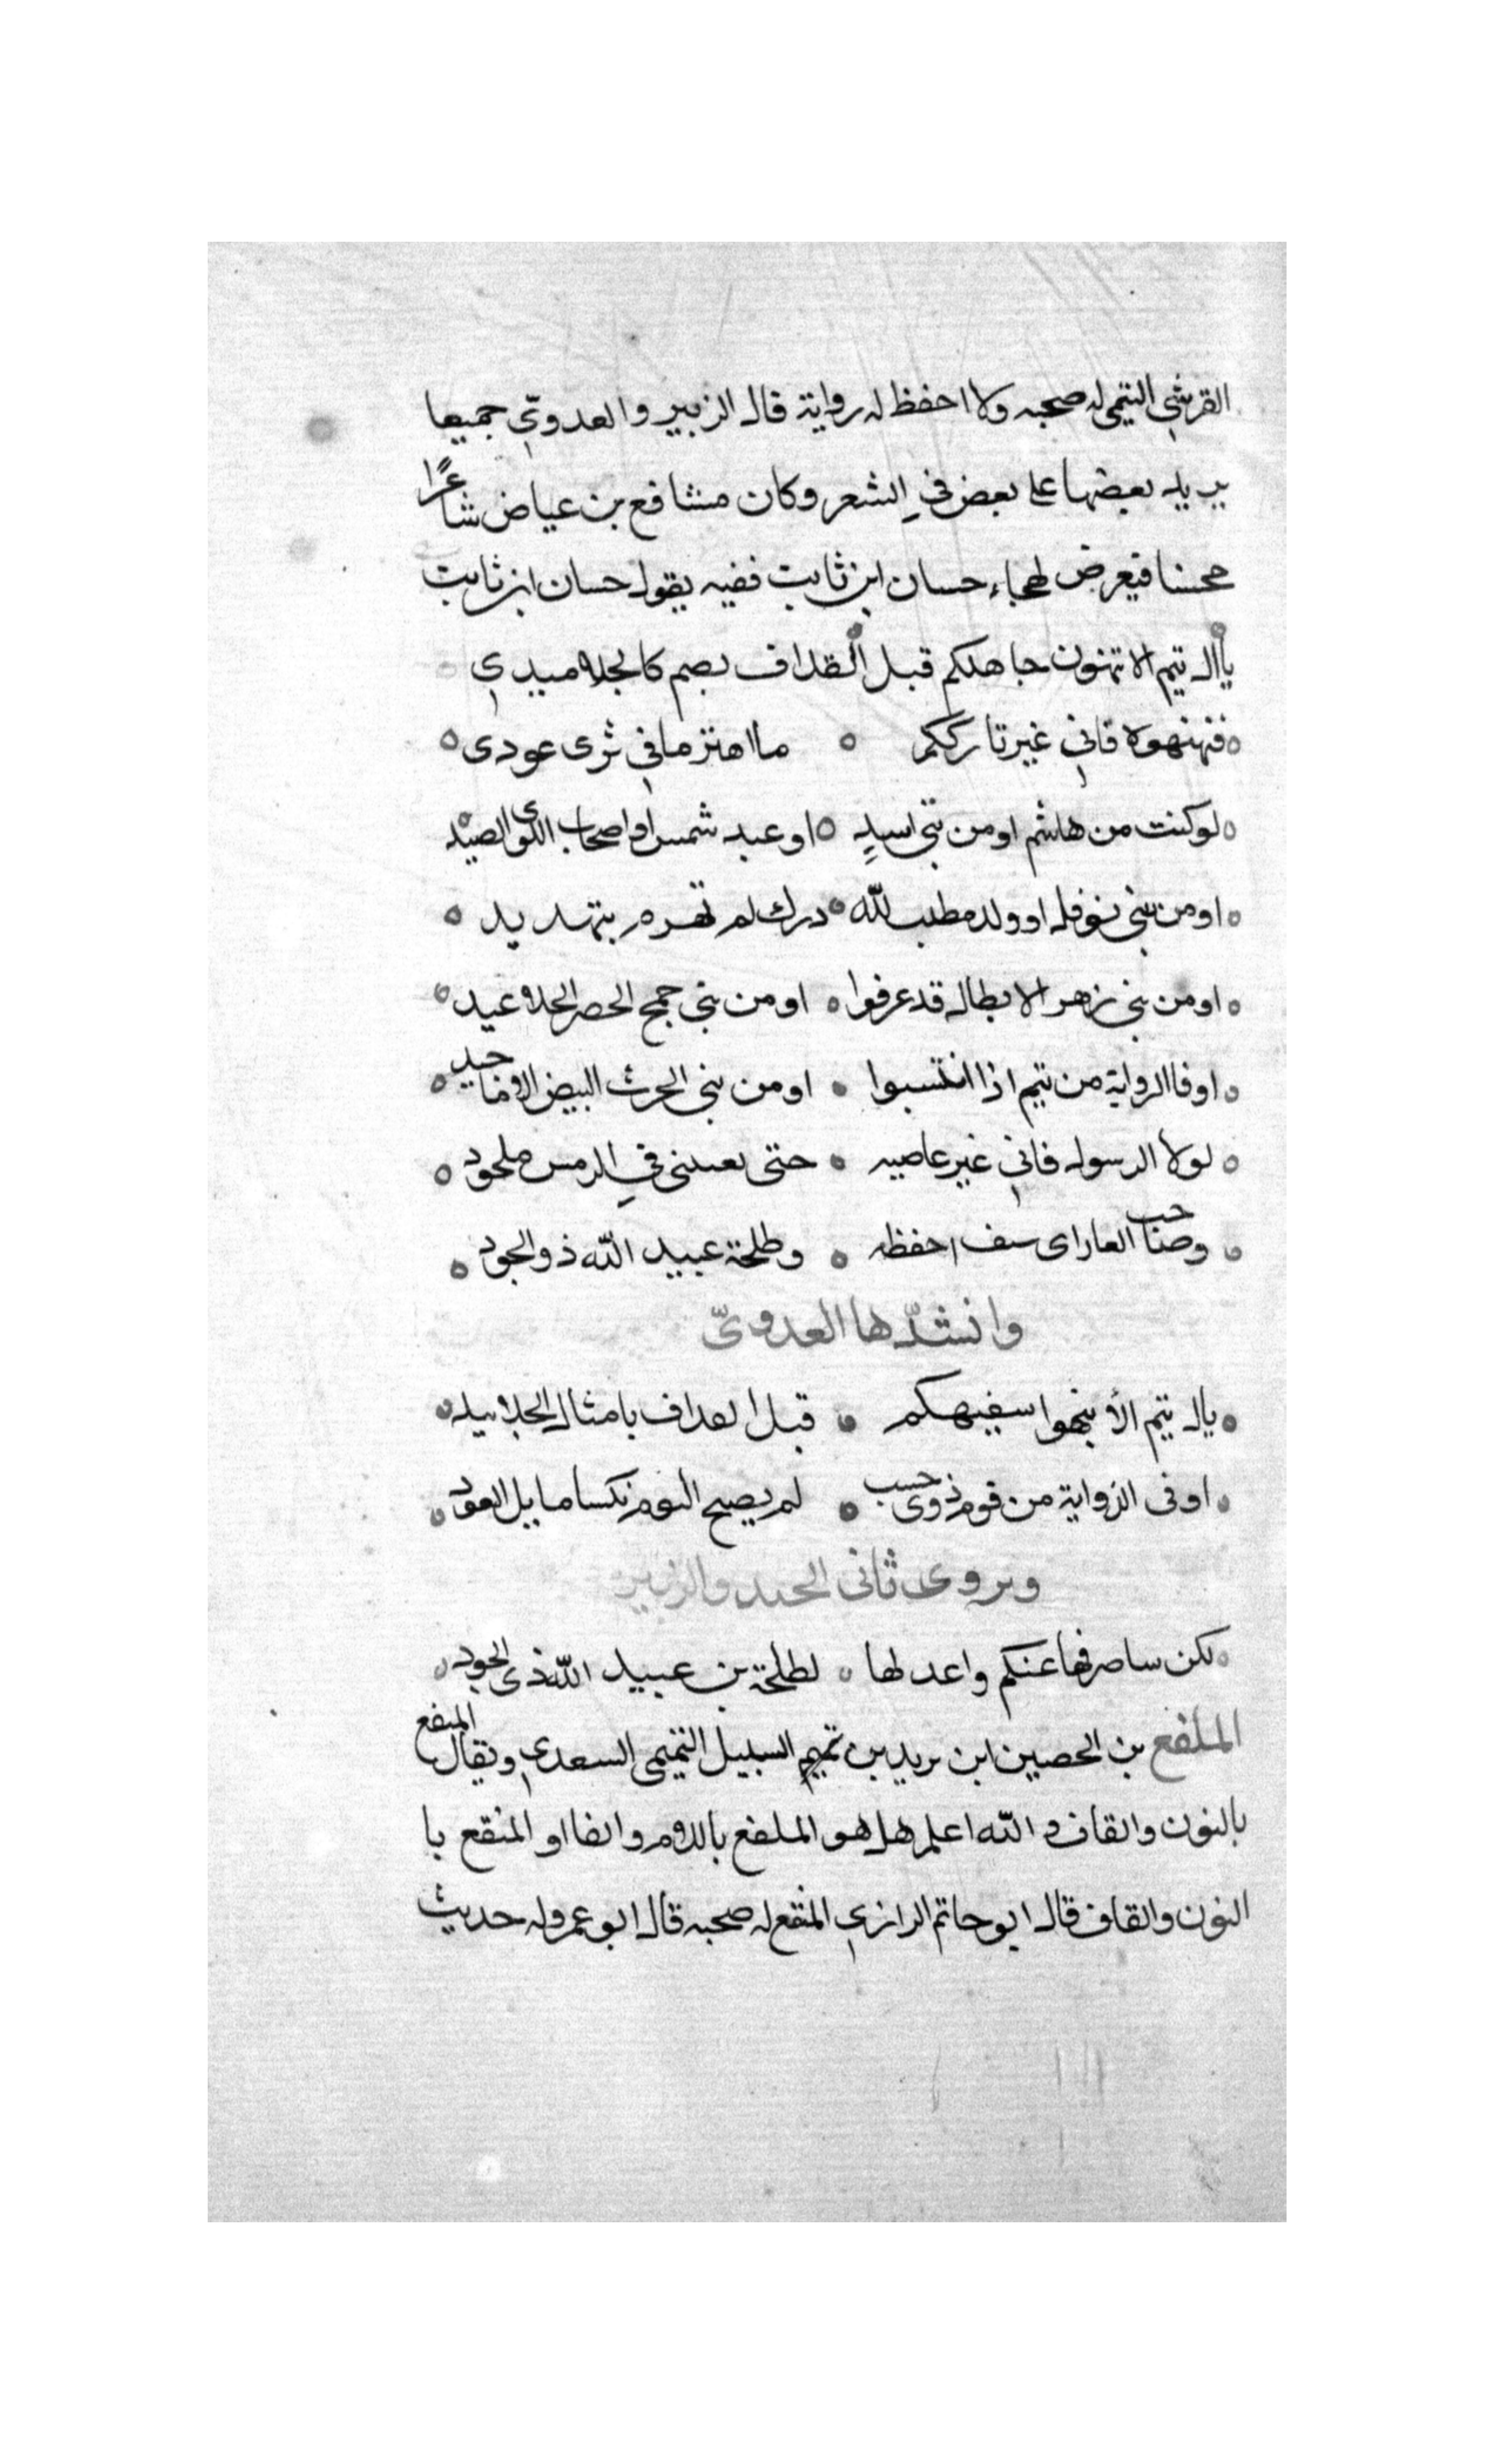 القرشي التيمي له صحبه ولا احفظ له رواية قال الزبير والعدوي جميعا
يزيد بعضها على بعض في الشعر وكان منشافع بن عياض شاعرًا
محسنا فيعرض لهجاء حسان ابن ثابت ففيه يقول حسان ابن ثابت
يأال تيم الا تنهون جاهلكم قبل القذاف بصم كالجلاميدي
فنهنهوه فاني غير تارككم ه ما اهتز ما في ثرى عودى
لو كنت من هاشم او من بني اسدٍ ه او عبد شمس او اصحاب اللوى الصيد
او من بني نوفل او ولد مطلب لله ه درك لم تهمم بتهديد
او من بني زهر الابطال قد عرفوا ه او من بني جمح الخضر الجلاعيد
او فى الرواية من تيم اذا انتسبوا ه او من بني الحرث البيض الاماجيد
لولا الرسول فاني غير عاصيه ه حتى يغيبني في الرمس ملحود
وصاحب الغار اى سف احفظه ه وطلحة عبيد الله ذو الجود
وانشدها العدويّ
يال تيم الأ ينهوا سفيهكم ه قبل القذاف بامثال الجلاميد
او فى الزواية من قوم ذوى حسب ه لم يصبح اليوم نكسا مايل العود
ويروى ثانى والزبير
لكن ساصرفها عنكم واعدلها ه لطلحة بن عبيد الله ذى الجود
الملفع بن الحصين ابن يزيد بن تميم السبيل التميمى السعدي ويقال المنقع
بالنون والقاف والله اعلم هل هو الملفع باللام والفا او المنقع با
النون والقاف قال ابو حاتم الرازي المنقع له صحبه قال ابو عمر وله حديث